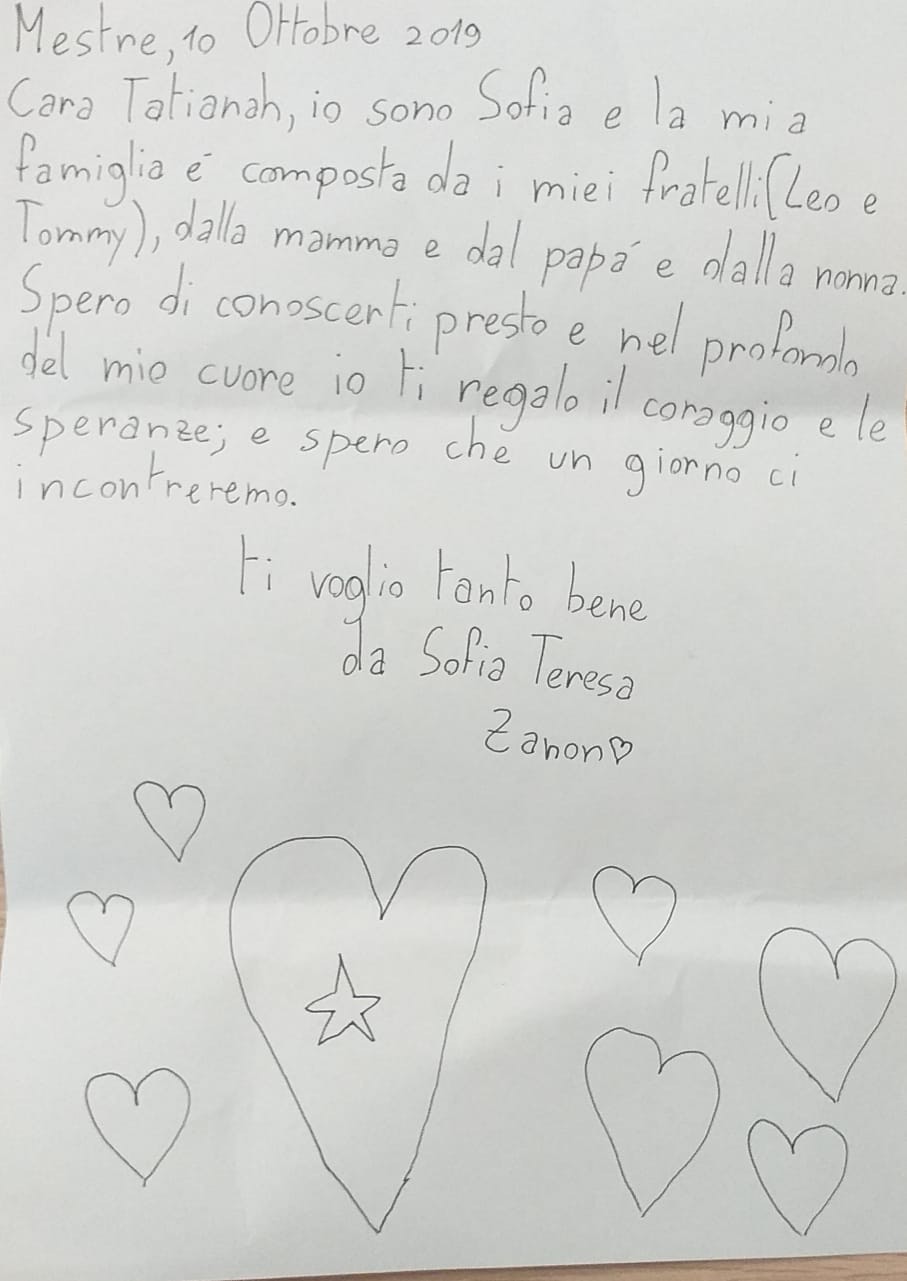 Mestre, 10 Ottobre 2019
Cara Tatianah, io sono Sofia e la mia
famiglia é composta da i miei fratelli (Leo e
Tommy), dalla mamma e dal papá e dalla nonna.
Spero di conoscerti presto e nel profondo
del mio cuore io ti regalo il coraggio e le
speranze; e spero che un giorno ci
incontreremo.
ti voglio tanto bene
da Sofia Teresa
Zanon♡